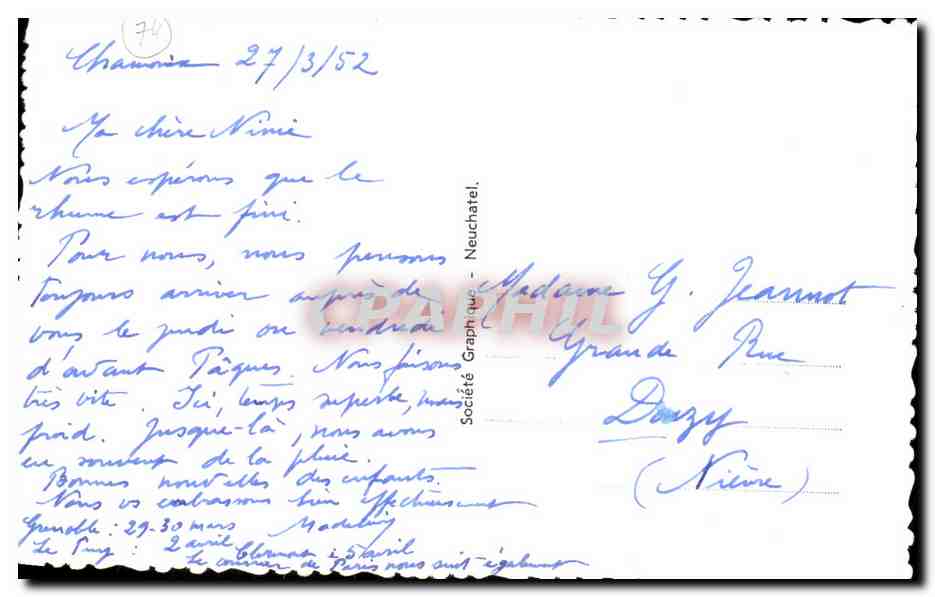 74
Chamonix 27/3/52
Ma chère Ninie
Nous espérons que le
rhume est fini.
Pour nous, nous pensons
toujours arriver auprès de
vous le jeudi ou vendredi
d'avant Pâques. Nous faisons
très vite. Ici, temps superbe, mais
froid. Jusque-là, nous avons
eu souvent de la pluie.
Bonnes nouvelles des enfants.
Nous vs embrassons bien affectueusement
Grenoble : 29-30 mars
Le Puy : 2 avril
Clermont : 5 avril
Le courrier de Paris nous suit également
Société Graphique - Neuchatel.
CPARHIL
Madame G. Jeannot
Grande Rue
Donzy
(Nièvre)